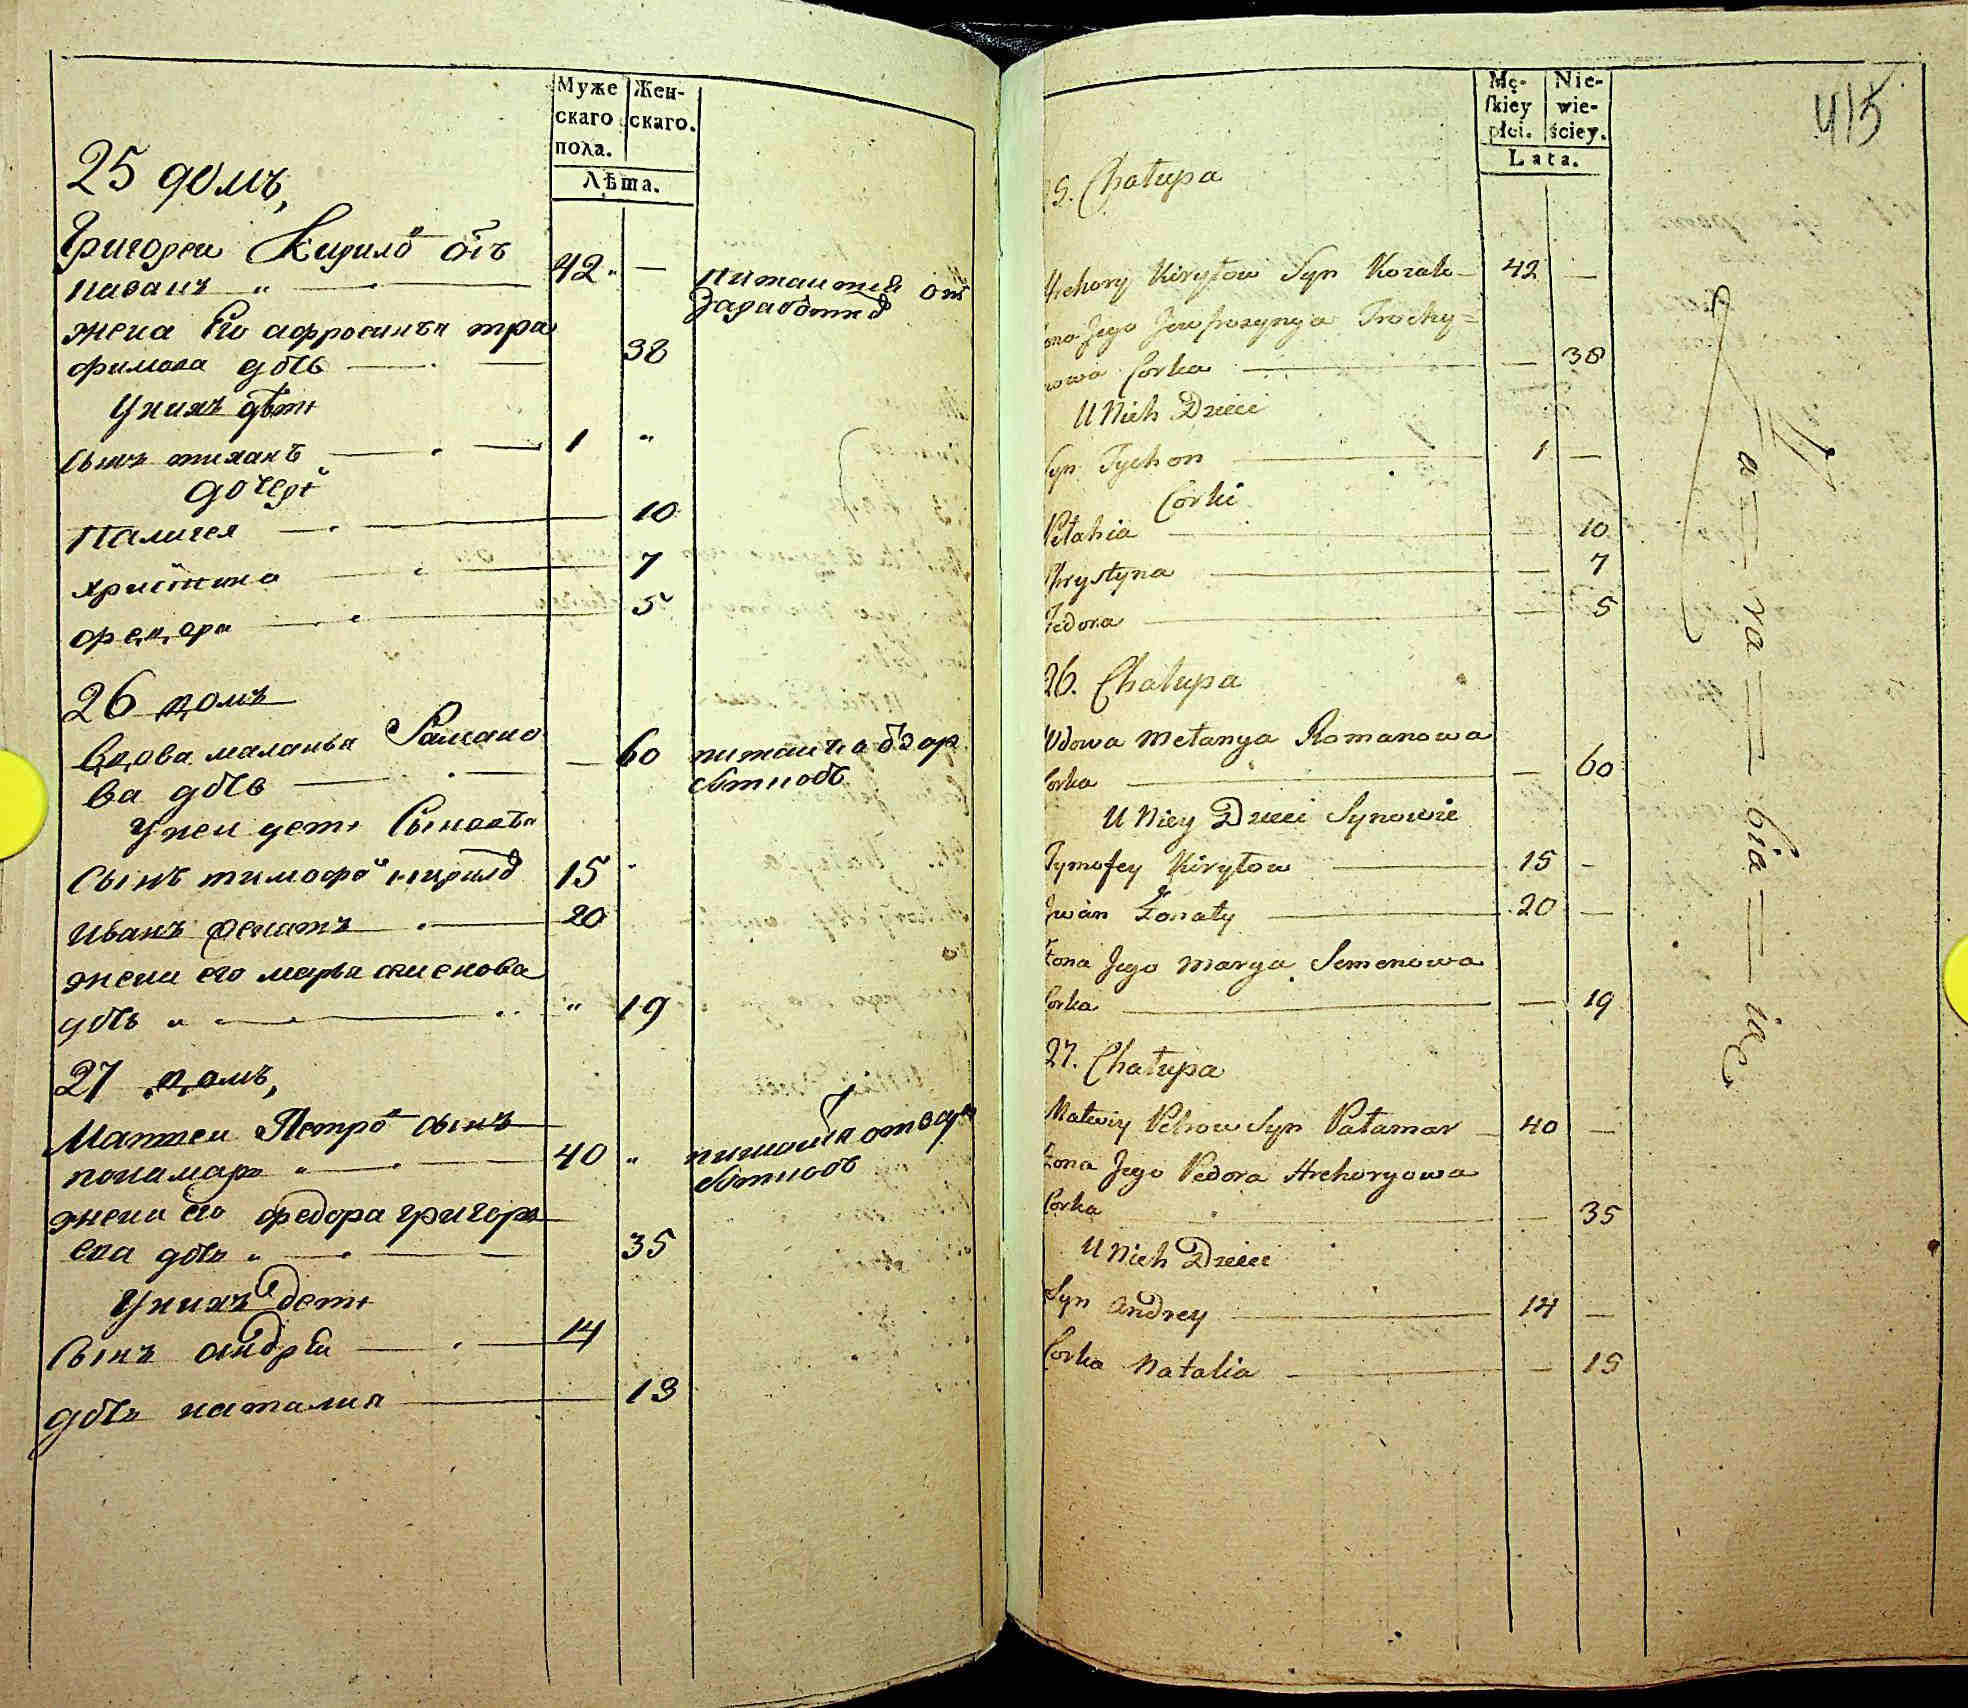 Муже
скаго
пола.
Жен-
скаго.
Лѣта.
25 домъ,
Григореи Кирило сн҃ъ
42 —
питаитца от
Заработко
жена Его афросинья тра
фимова дочь — 38
У нихъ дѣти
Сынъ тиханъ — 1 "
дочери
Палагея — 10
христина — 7
федора — 5
26 домъ
Вдова маланья Рамано
ва дочь — 60
У неи дети Сыновья
Сынъ тимофе кирило 15
Иванъ женатъ — 20
жена его марья семенова
дочь " — " 19
27 домъ,
Матвеи Петро сынъ
понамарь " — 40 "
жена его федора григорь
ева дочь " — 35
У нихъ дети
Сынъ андреи — 14
дочь наталия — 13
Mę-
skiey
płci.
Nie-
wie-
ściey.
Lata.
415
25. Chałupa
Hrehory Kiryłow Syn Kozak — 42 —
Żona Jego Jewfrozynya Trochy=
mowa Corka — 38
U Nich Dzieci
Syn Tychon — 1 —
Corki
Pełahia — 10
Chrystyna — 7
Fedora — 5
26. Chałupa
Wdowa Mełanya Romanowa
Corka — 60
U Niey Dzieci Synowie
Tymofey Kiryłow — 15 —
Jwan Żonaty — 20 —
Żona Jego Marya Semenowa
Corka — 19
27. Chałupa
Matwiy Petrow Syn Pałamar — 40 —
Żona Jego Fedora Hrehoryowa
Corka — 35
U Nich Dzieci
Syn Andrey — 14 —
Corka Natalia — 15